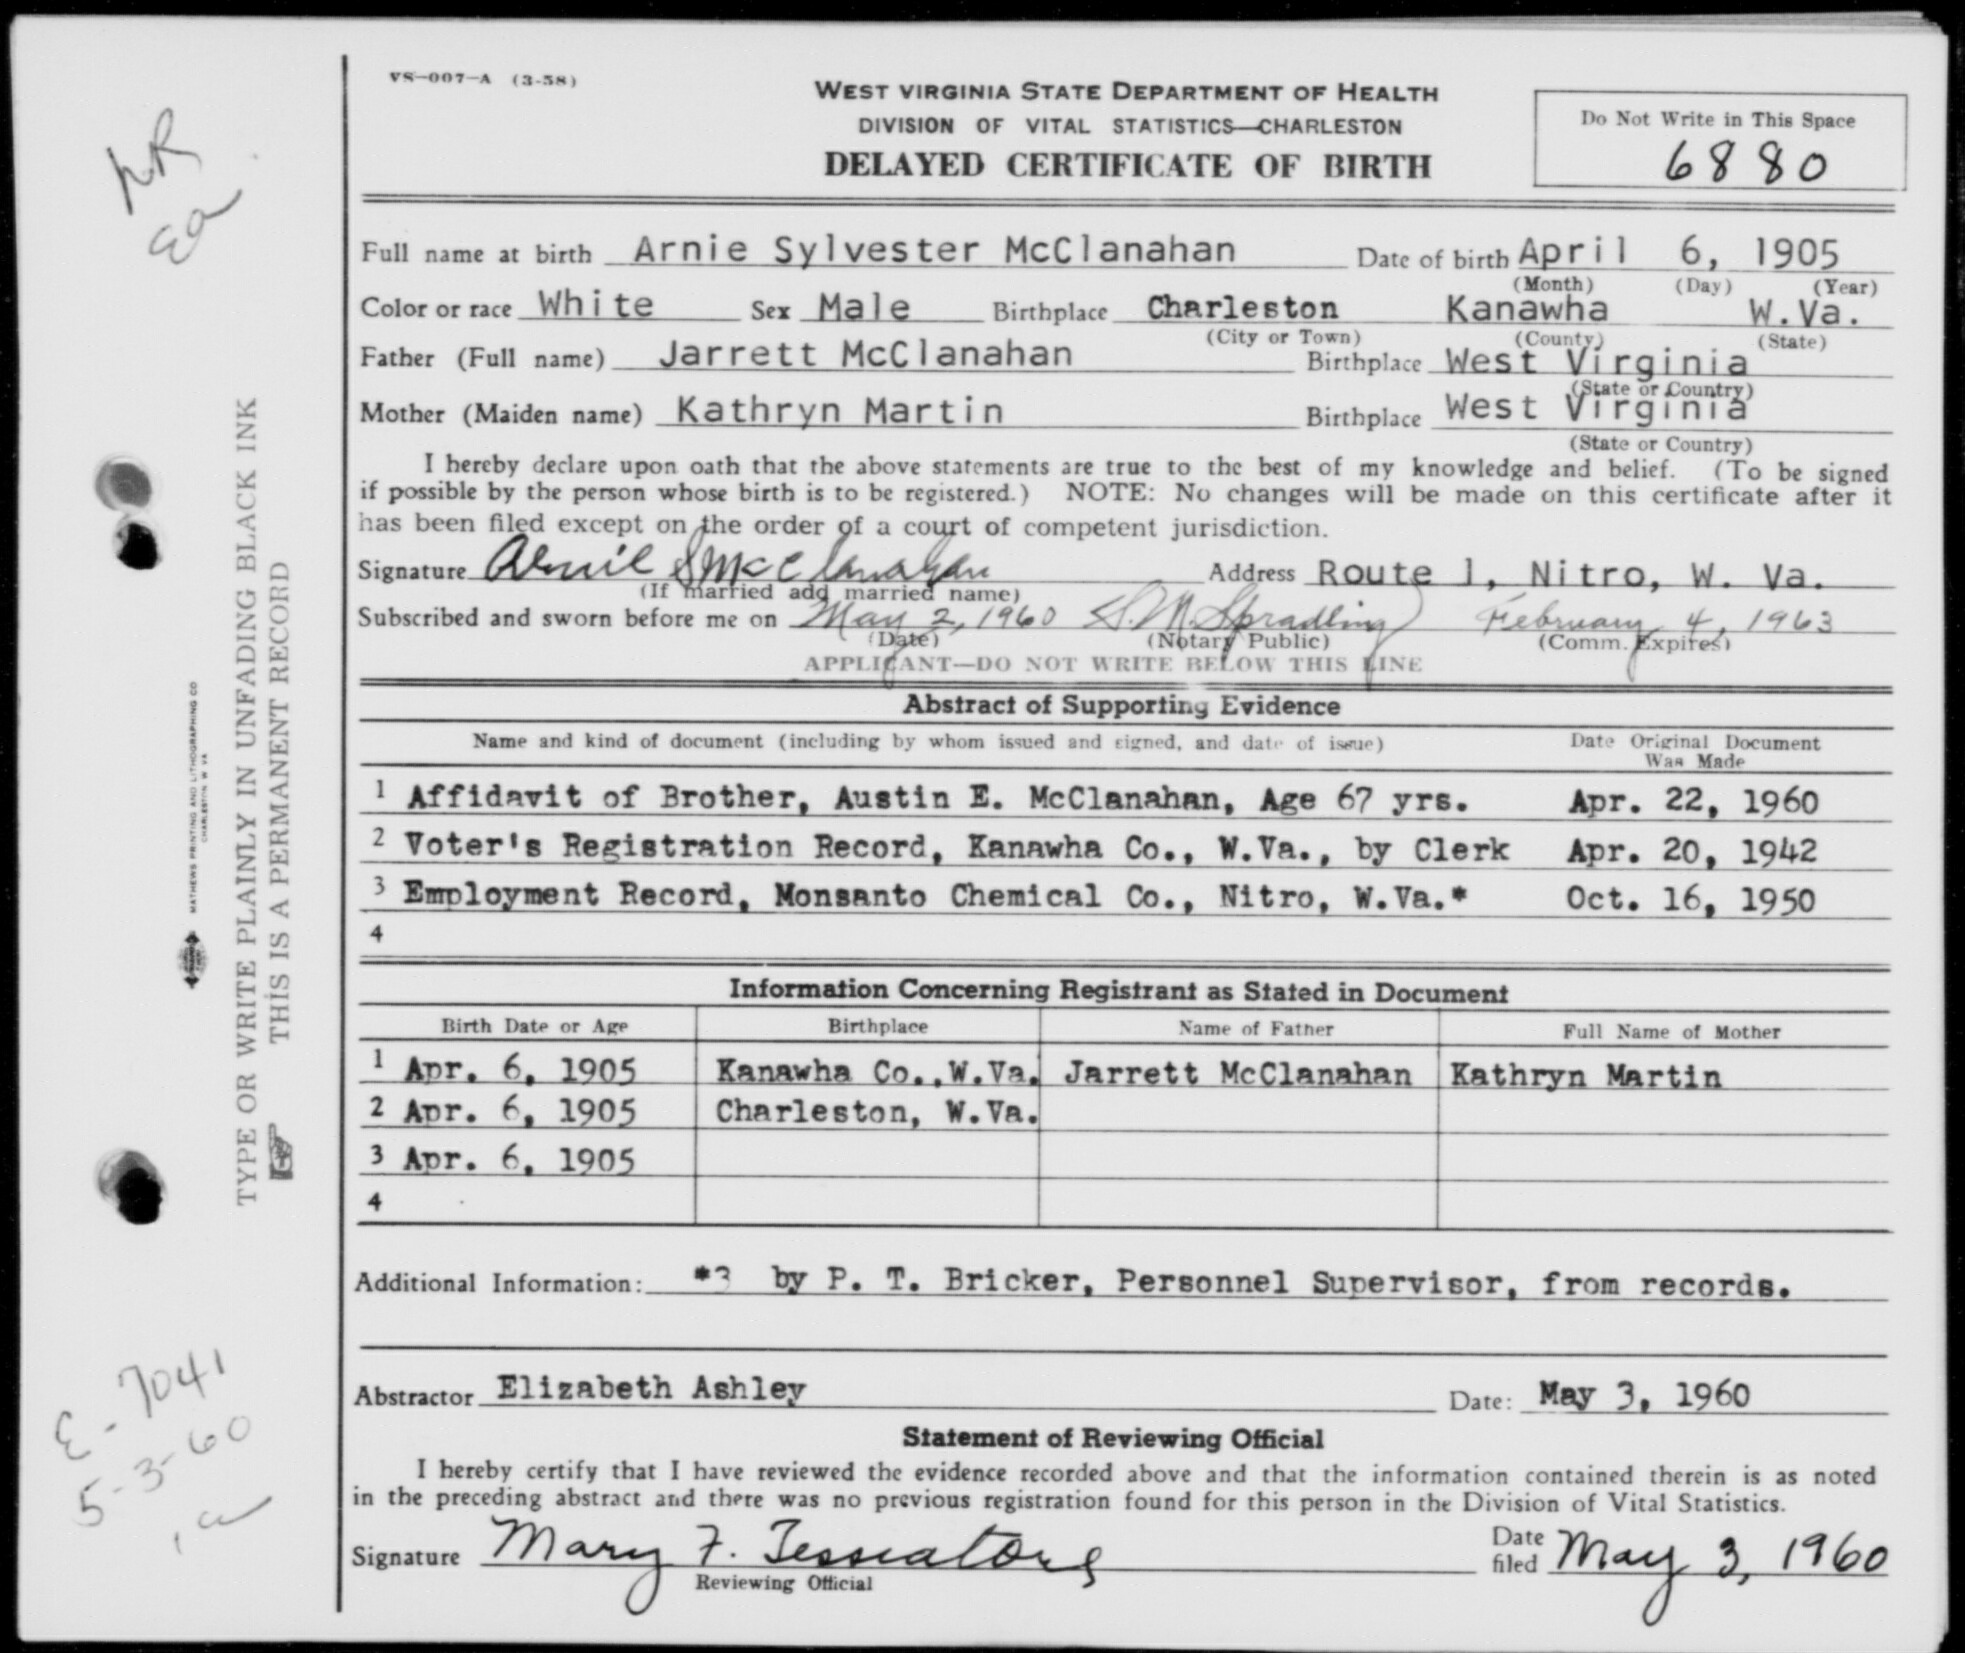 VS-007-A (3-58)
WEST VIRGINIA STATE DEPARTMENT OF HEALTH
DIVISION OF VITAL STATISTICS—CHARLESTON
DELAYED CERTIFICATE OF BIRTH
Do Not Write in This Space
6880
Full name at birth Arnie Sylvester McClanahan Date of birth April 6, 1905
(Month) (Day) (Year)
Color or race White Sex Male Birthplace Charleston Kanawha W.Va.
(City or Town) (County) (State)
Father (Full name) Jarrett McClanahan Birthplace West Virginia
(State or Country)
Mother (Maiden name) Kathryn Martin Birthplace West Virginia
(State or Country)
I hereby declare upon oath that the above statements are true to the best of my knowledge and belief. (To be signed
if possible by the person whose birth is to be registered.) NOTE: No changes will be made on this certificate after it
has been filed except on the order of a court of competent jurisdiction.
Signature Arnie S McClanahan Address Route 1, Nitro, W. Va.
(If married add married name)
Subscribed and sworn before me on May 2, 1960 S.M. Spradling February 4, 1963
(Date) (Notary Public) (Comm. Expires)
APPLICANT—DO NOT WRITE BELOW THIS LINE
Abstract of Supporting Evidence
Name and kind of document (including by whom issued and signed, and date of issue) Date Original Document
Was Made
1 Affidavit of Brother, Austin E. McClanahan, Age 67 yrs. Apr. 22, 1960
2 Voter's Registration Record, Kanawha Co., W.Va., by Clerk Apr. 20, 1942
3 Employment Record, Monsanto Chemical Co., Nitro, W.Va.* Oct. 16, 1950
4
Information Concerning Registrant as Stated in Document
Birth Date or Age Birthplace Name of Father Full Name of Mother
1 Apr. 6, 1905 Kanawha Co.,W.Va. Jarrett McClanahan Kathryn Martin
2 Apr. 6, 1905 Charleston, W.Va.
3 Apr. 6, 1905
4
Additional Information: *3 by P. T. Bricker, Personnel Supervisor, from records.
Abstractor Elizabeth Ashley Date: May 3, 1960
Statement of Reviewing Official
I hereby certify that I have reviewed the evidence recorded above and that the information contained therein is as noted
in the preceding abstract and there was no previous registration found for this person in the Division of Vital Statistics.
Signature Mary F. Date
filed May 3, 1960
Reviewing Official
TYPE OR WRITE PLAINLY IN UNFADING BLACK INK
THIS IS A PERMANENT RECORD
MATHEWS PRINTING AND LITHOGRAPHING CO
CHARLESTON W VA
NR
ea
E-7041
5-3-60